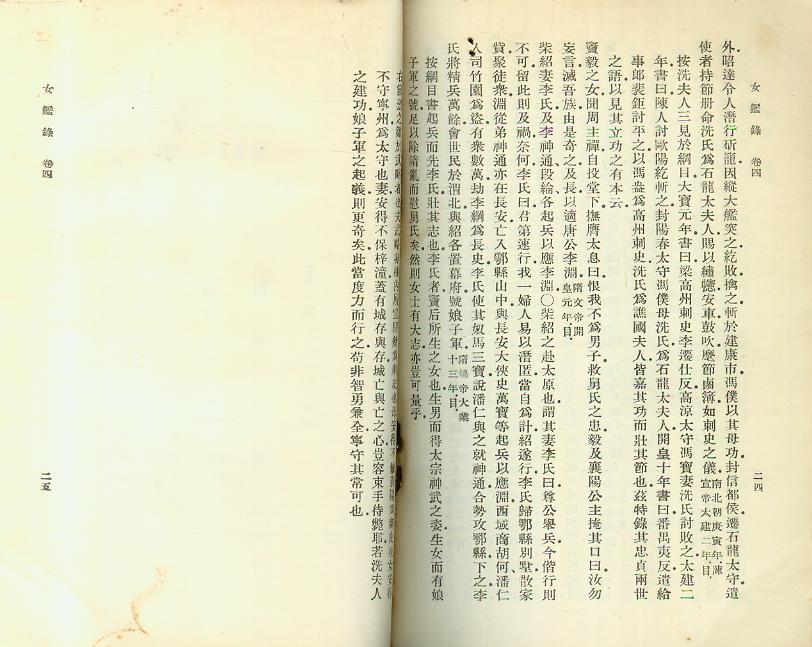 女鑑錄 卷四
二四
外昭達令人潛行斫籠因縱大艦突之紇敗擒之斬於建康市馮僕以其母功封信都侯遷石龍太守遣
使者持節册命洗氏爲石龍太夫人賜以繡幰安車鼓吹麾節鹵簿如刺史之儀南北朝庚寅年陳宣帝太建二年目
按洗夫人三見於綱目大寶元年書曰梁高州刺史李遷仕反高涼太守馮寶妻洗氏討敗之太建二
年書曰陳人討歐陽紇斬之封陽春太守馮僕母洗氏爲石龍太夫人開皇十年書曰番禺夷反遣給
事郎裴鉅討平之以馮盎爲高州刺史洗氏爲譙國夫人皆嘉其功而壯其節也茲特錄其忠貞兩世
之語以見其立功之有本云
竇毅之女聞周主禪自投堂下撫膺太息曰恨我不爲男子救舅氏之患毅及襄陽公主掩其口曰汝勿
妄言滅吾族由是奇之及長以適唐公李淵隋文帝開皇元年目
柴紹妻李氏及李神通段綸各起兵以應李淵〇柴紹之赴太原也謂其妻李氏曰尊公舉兵今偕行則
不可留此則及禍奈何李氏曰君第速行我一婦人易以潛匿當自爲計紹遂行李氏歸鄠縣別墅散家
貲聚徒衆淵從弟神通亦在長安亡入鄠縣山中與長安大俠史萬寶等起兵以應淵西域商胡何潘仁
入司竹園爲盜有衆數萬劫李綱爲長史李氏使其奴馬三寶說潘仁與之就神通合勢攻鄠縣下之李
氏將精兵萬餘會世民於渭北與紹各置幕府號娘子軍隋煬帝大業十三年目
按綱目書起兵而先李氏壯其志也李氏者竇后所生之女也生男而得太宗神武之姿生女而有娘
子軍之號足以除隋亂而慰舅氏矣然則女士有大志亦豈可量乎
女鑑錄 卷四
二五
不守寧州爲太守也妻安得不保梓潼蓋有城存與存城亡與亡之心豈容束手待斃耶若洗夫人
之建功娘子軍之起義則更奇矣此當度力而行之苟非智勇兼全寧守其常可也